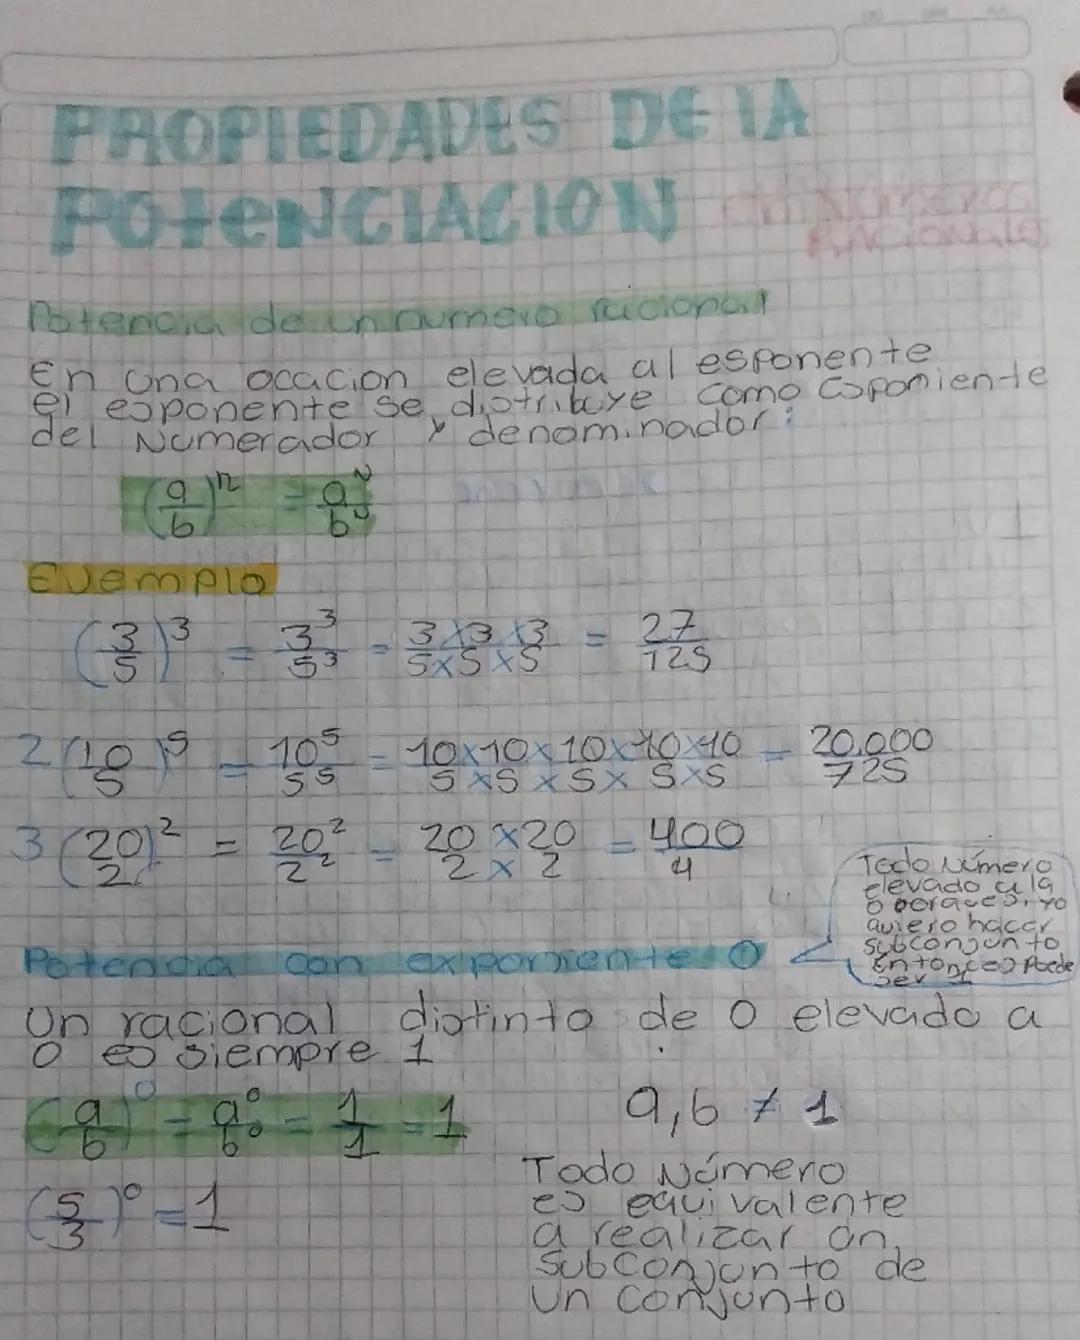 PROPIEDADES DE lA
POteNCIACION en Números
RACIONALES
Potencia de un numero racional
En una ocacion elevada al esponente
el esponente se distribuye como Esponiente
del Numerador y denominador:
(a/b)^n = a^n/b^n
Ejemplo
(3/5)^3 = 3^3/5^3 = 3x3x3/5x5x5 = 27/125
2 (10/5)^5 = 10^5/5^5 = 10x10x10x10x10/5x5x5x5x5 = 20,000/725
3 (20/2)^2 = 20^2/2^2 = 20x20/2x2 = 400/4
Todo Número
elevado a la
0 porque si yo
quiero hacer
subconjunto
Entonces Puede
ser 1
Potencia con exponiente 0
Un racional distinto de 0 elevado a
0 es siempre 1
(a/b)^0 = a^0/b^0 = 1/1 = 1
a,b ≠ 1
(5/3)^0 = 1
Todo Número
es equivalente
a realizar un
subconjunto de
un conjunto